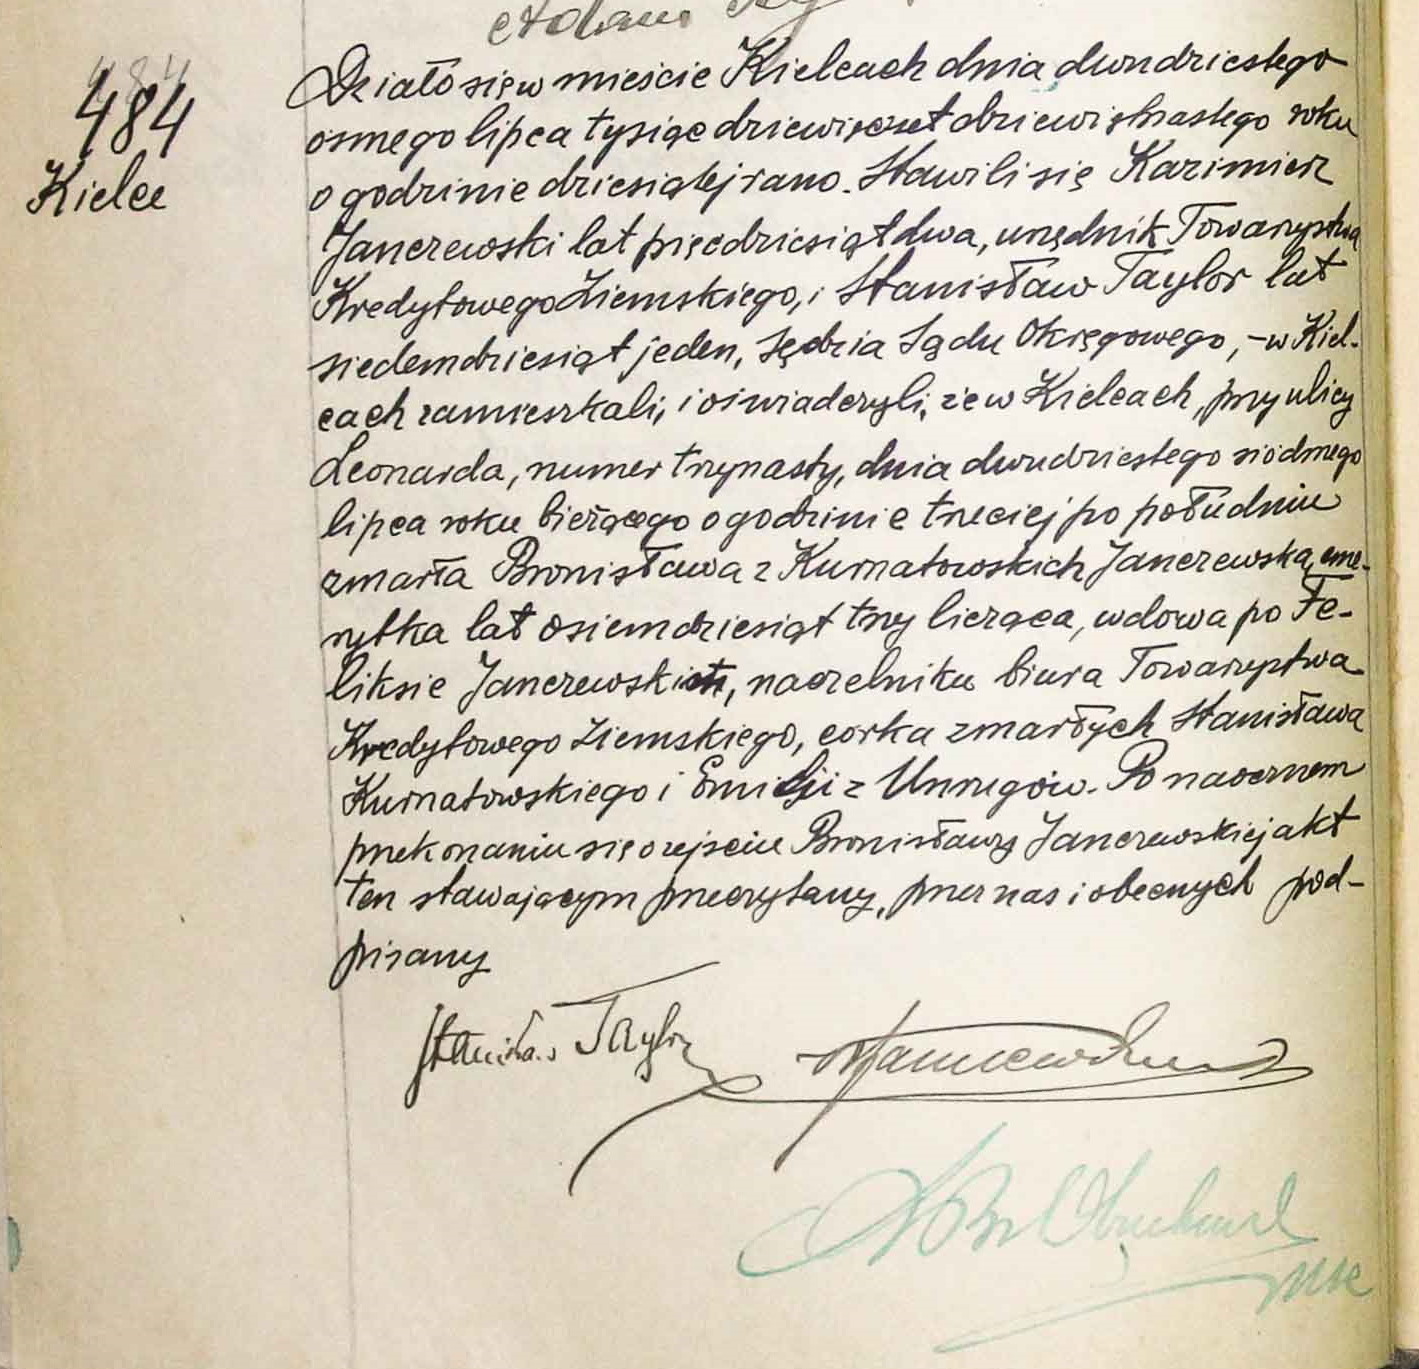 Adam
484
Kielce
Działo się w mieście Kielcach dnia dwudziestego
ósmego lipca tysiąc dziewięćset dziewiętnastego roku
o godzinie dziesiątej rano. Stawili się Kazimierz
Janczewski lat pięćdziesiąt dwa, urzędnik Towarzystwa
Kredytowego Ziemskiego, i Stanisław Taylor lat
siedemdziesiąt jeden, Sędzia Sądu Okręgowego, - w Kiel-
cach zamieszkali, i oświadczyli, że w Kielcach, przy ulicy
Leonarda, numer trzynasty, dnia dwudziestego siódmego
lipca roku bieżącego o godzinie trzeciej po południu
zmarła Bronisława z Kurnatowskich Janczewska, eme-
rytka lat osiemdziesiąt trzy licząca, wdowa po Fe-
liksie Janczewskim, naczelniku biura Towarzystwa
Kredytowego Ziemskiego, córka zmarłych Stanisława
Kurnatowskiego i Emilji z Unrugów. Po naocznem
przekonaniu się o zejściu Bronisławy Janczewskiej akt
ten stawającym przeczytany, przez nas i obecnych pod-
pisany
Stanisław Taylor
KJanczewski